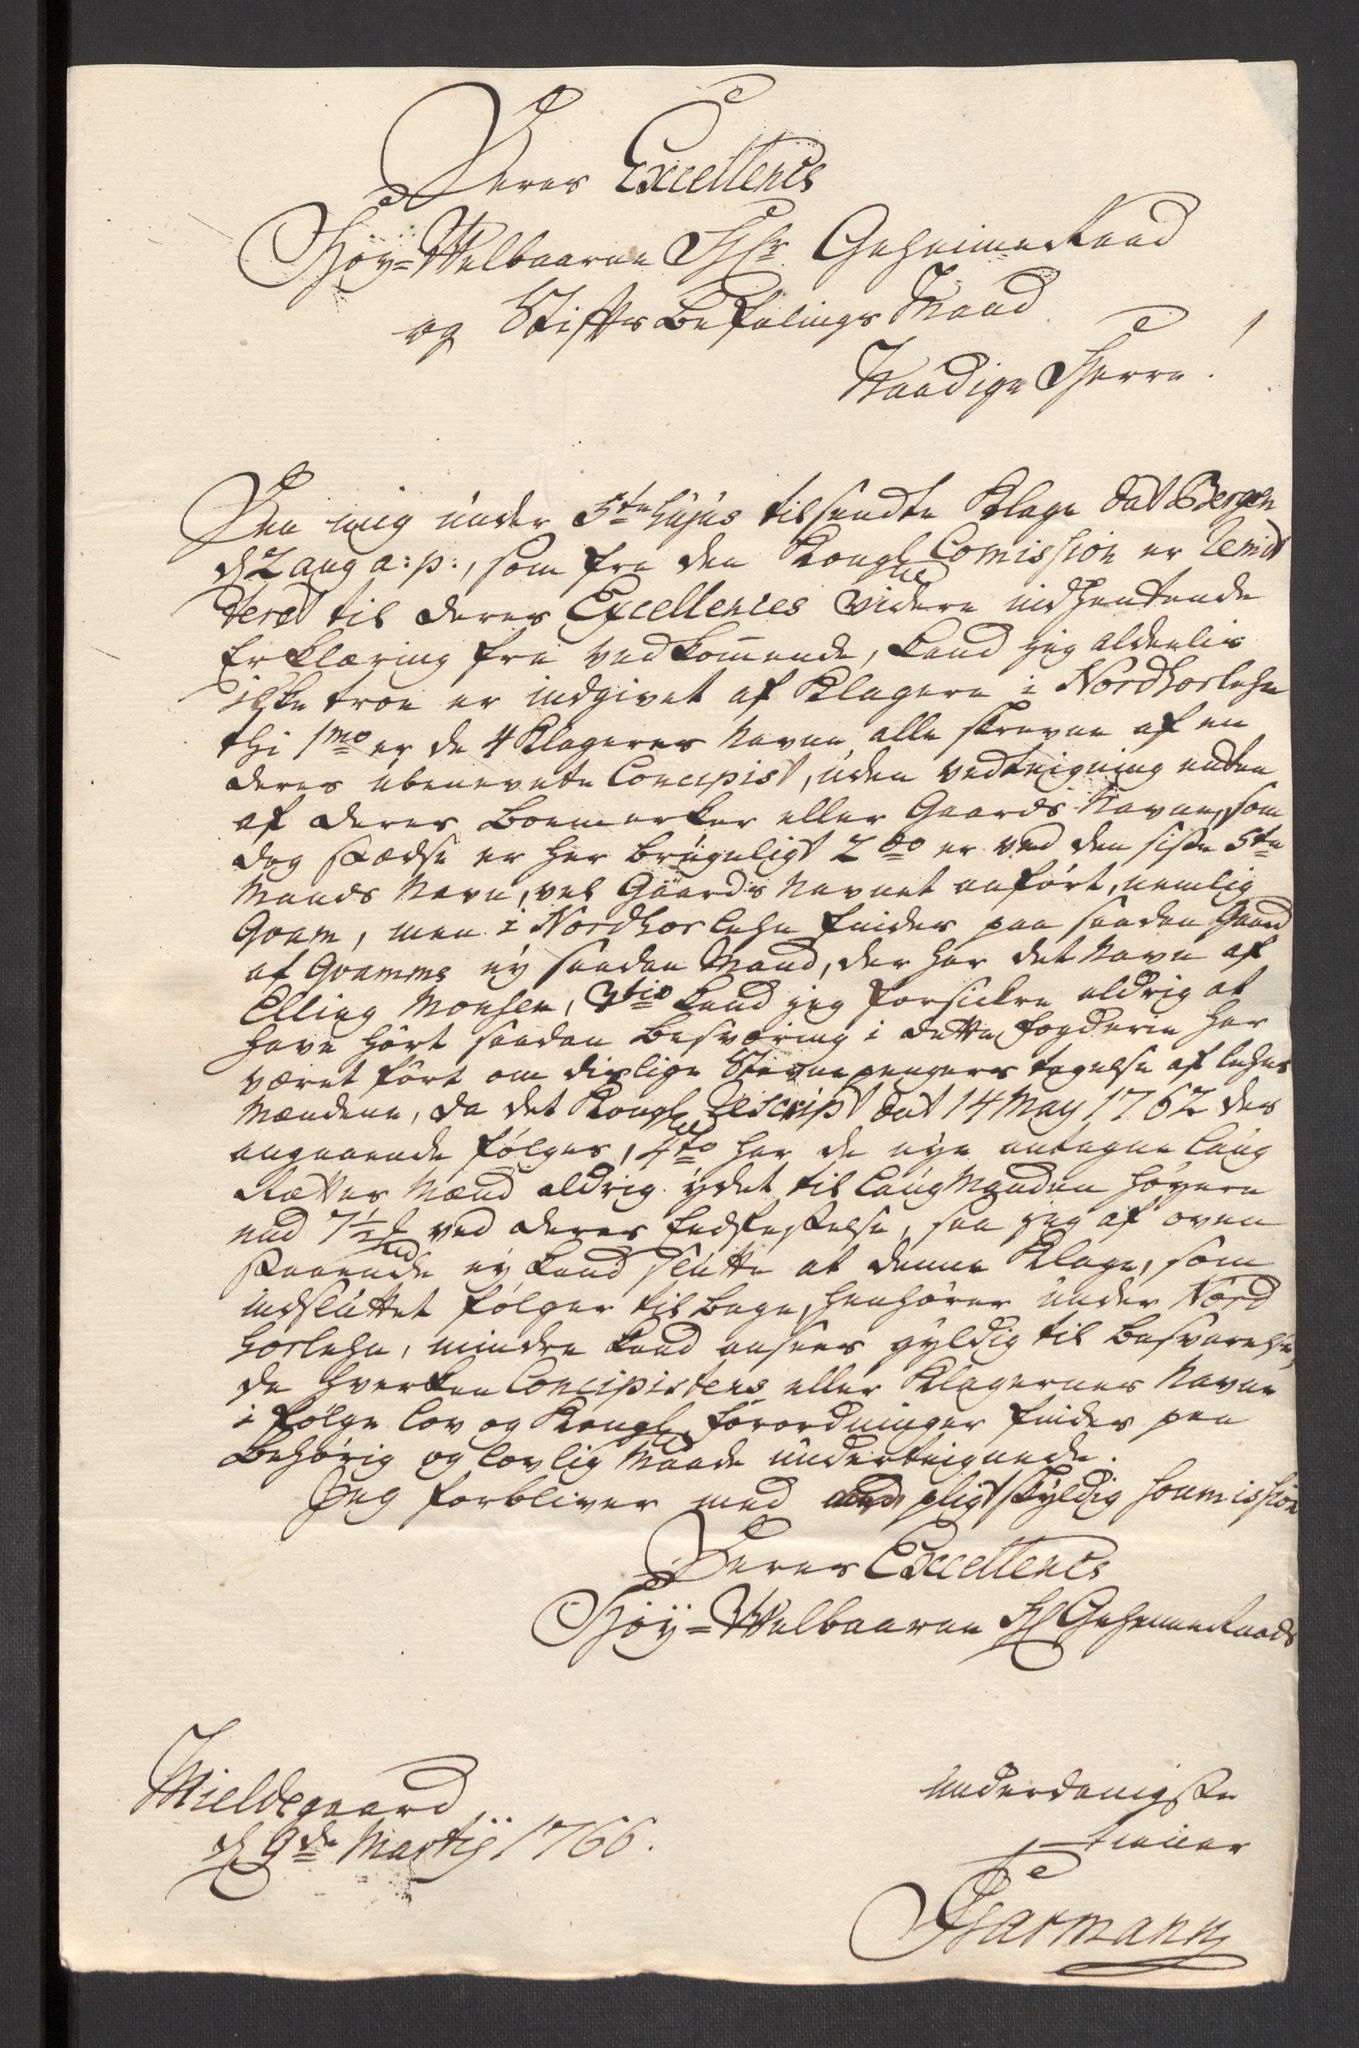 Deres Excellence
Høy-Welbaarne Hr Geheime Raad
og Stiftsbefalings Mand
Naadige Herre!
Den mig under 5te hujus tilsendte Klage dat Bergen
d 2 aug a: p:, som fra den Kongl Comission er remit
teret til Deres Excellences videre indhentende
Erklæring fra vedkommende, kand jeg aldeelis
ikke troe er indgivet af Klagere i Nordhorlehn
thi 1mo er de 4 Klageres Navne alle skrevne af en
deres ubenevnte Concipist, uden vedteigning enten
af deres Boemerker eller Gaards Navne, som
dog stædse er her brugeligt 2do er ved den siste 5te
Mands Navn, vel Gaards Navnet anført, nemlig
Qvam, men i Nordhorlehn findes paa saadan Gaard
af Qvamme ey saadan Mand, der har det Navn af
Elling Monsen, 3tio kand jeg forsickre aldrig at
have hørt saadan besværing i dette fogderie har
været ført om dislige Stevnepengers tagelse af lehns
Mændene, da det Kongl Rescript dat 14 May 1762 des
angaaende følges, 4to har de nye antagne Laug
Rættes Mænd aldrig ydet til Laugmanden høyere
end 7 1/2 ved deres Eedfestelse, saa jeg af oven
staaende ey kand slutte at denne Klage, som
indsluttet følger til bage, henhører under Nord
horlehn, mindre kand ansees gyldig til besvarelse,
da hverken Concipistens eller Klagernes Navne
i følge lov og Kongl forordninger findes paa
behørig og lovlig Maade underteignede.
Jeg forbliver med pligtskyldig soumission
Deres Excellence
Høy-Welbaarne Hr Geheime Raads
Mieldegaard
d 9de Martij 1766.
underdanigste
tiener
Garmann